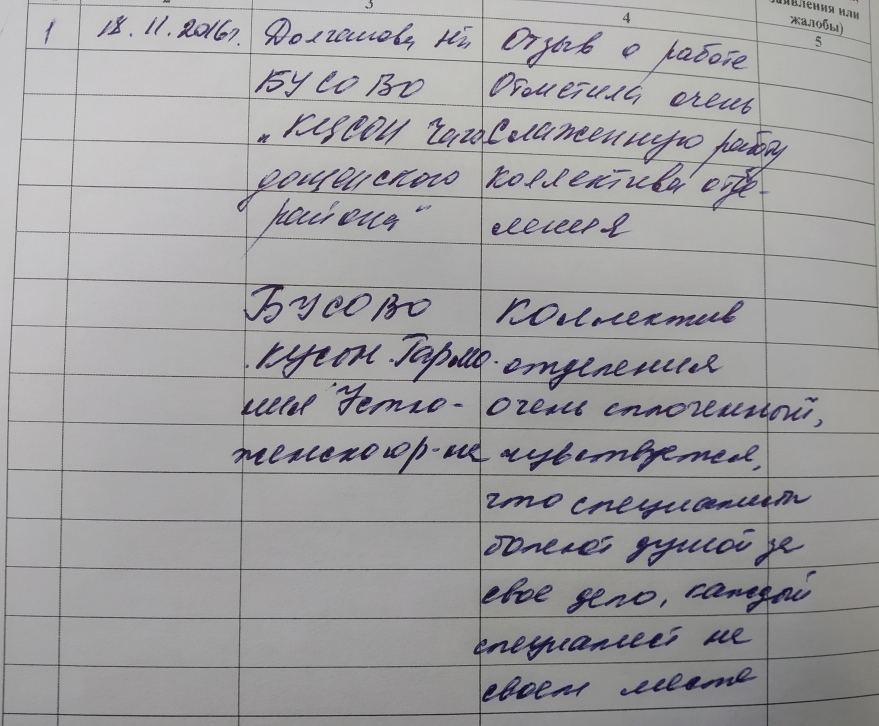 3
4
заявления или
жалобы)
5
1 18.11.2016г. Долгашова НН
БУСОВО
„КЦСОН Чаго
дощенского
района"
Отзыв о работе
Отметила очень
слаженную работу
коллектива отде-
ления
БУСОВО
"КЦСОН "Гармо-
ния" Устю-
женского р-на
Коллектив
отделения
очень сплоченный,
чувствуется,
что специалисты
болеют душой за
свое дело, каждый
специалист на
своем месте